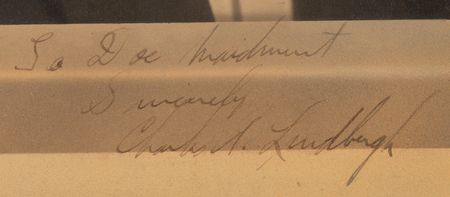 To Doc Maidment
Sincerely
Charles A. Lindbergh